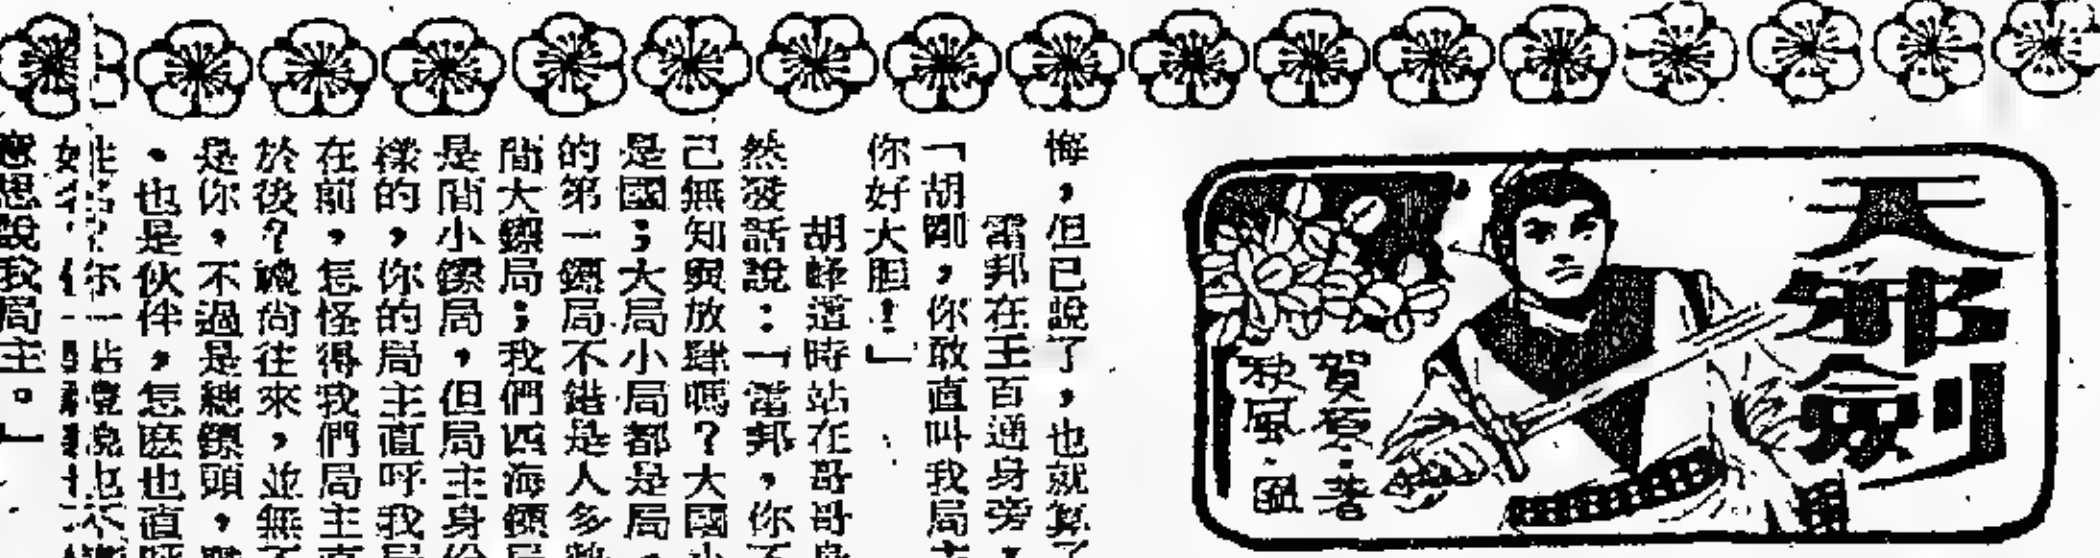 天邪劍
賀夏·著
秋風·圖
悔，但已說了，也就算了
雷邦在王百通身旁，
「胡剛，你敢直叫我局主
你好大胆！」
胡峰這時站在哥哥身
然發話說：「雷邦，你不
己無知與放肆嗎？大國小
是國；大局小局都是局。
的第一鏢局不錯是人多勢
間大鏢局；我們四海鏢局
是間小鏢局，但局主身份
樣的，你的局主直呼我局
在前，怎怪得我們局主直
於後？禮尚往來，並無不
是你，不過是總鏢頭，
，也是伙伴，怎麼也直呼
說我局主。」